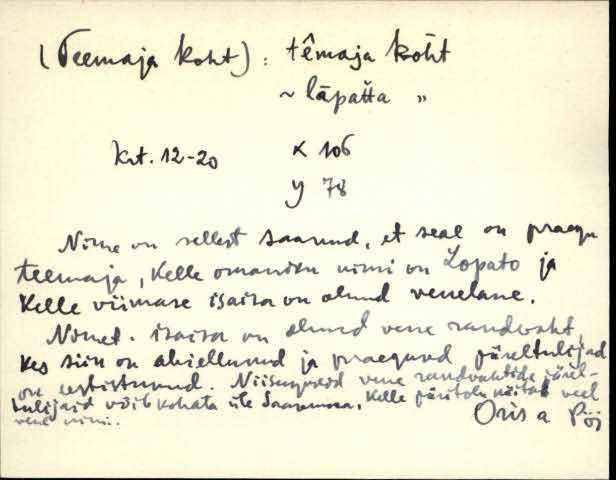 (Teemaja koht) : têmaja koht
~ lāpatta "
Krt. 12-20 x 106
y 78
Nime on sellest saanud, et seal on praegu
teemaja, kelle omaniku nimi on Lopato ja
kelle viimase isaisa on olnud venelane.
Nimet. isaisa on olnud vene randvaht,
kes siin on abiellunud ja praegused järeltulijad
on eestistunud. Niisuguseid vene randvahtide järel-
tulijaid võib kohata üle Saaremaa, kelle päritolu näitab veel
vene nimi.
Oris a Pöi